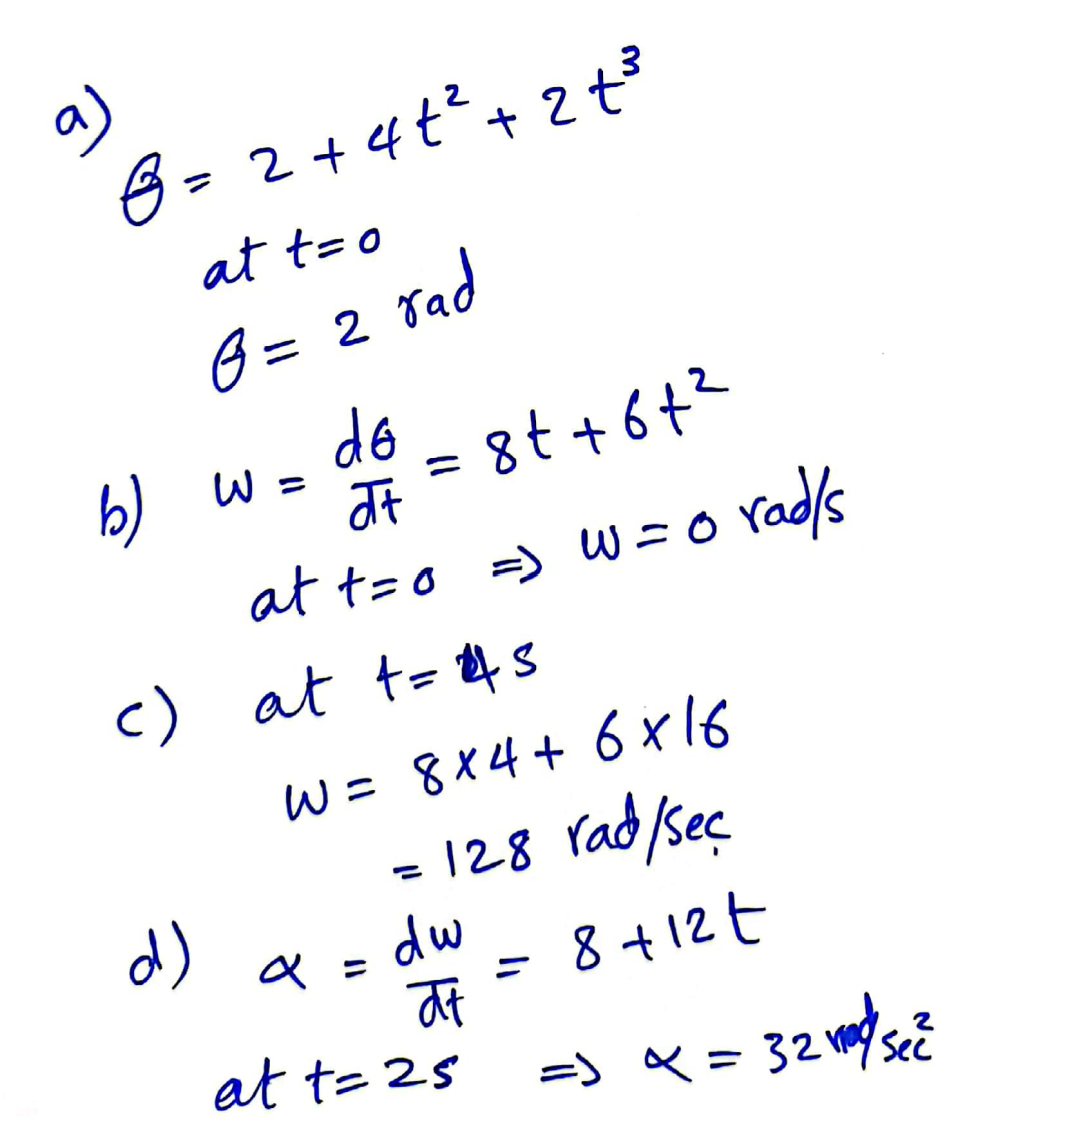 a)
θ = 2 + 4t² + 2t³
at t=0
θ = 2 rad
b) w = dθ/dt = 8t + 6t²
at t=0 => w = 0 rad/s
c) at t= 4s
w = 8x4 + 6x16
= 128 rad/sec
d) α = dw/dt = 8 + 12t
at t= 2s => α = 32 rad/sec²